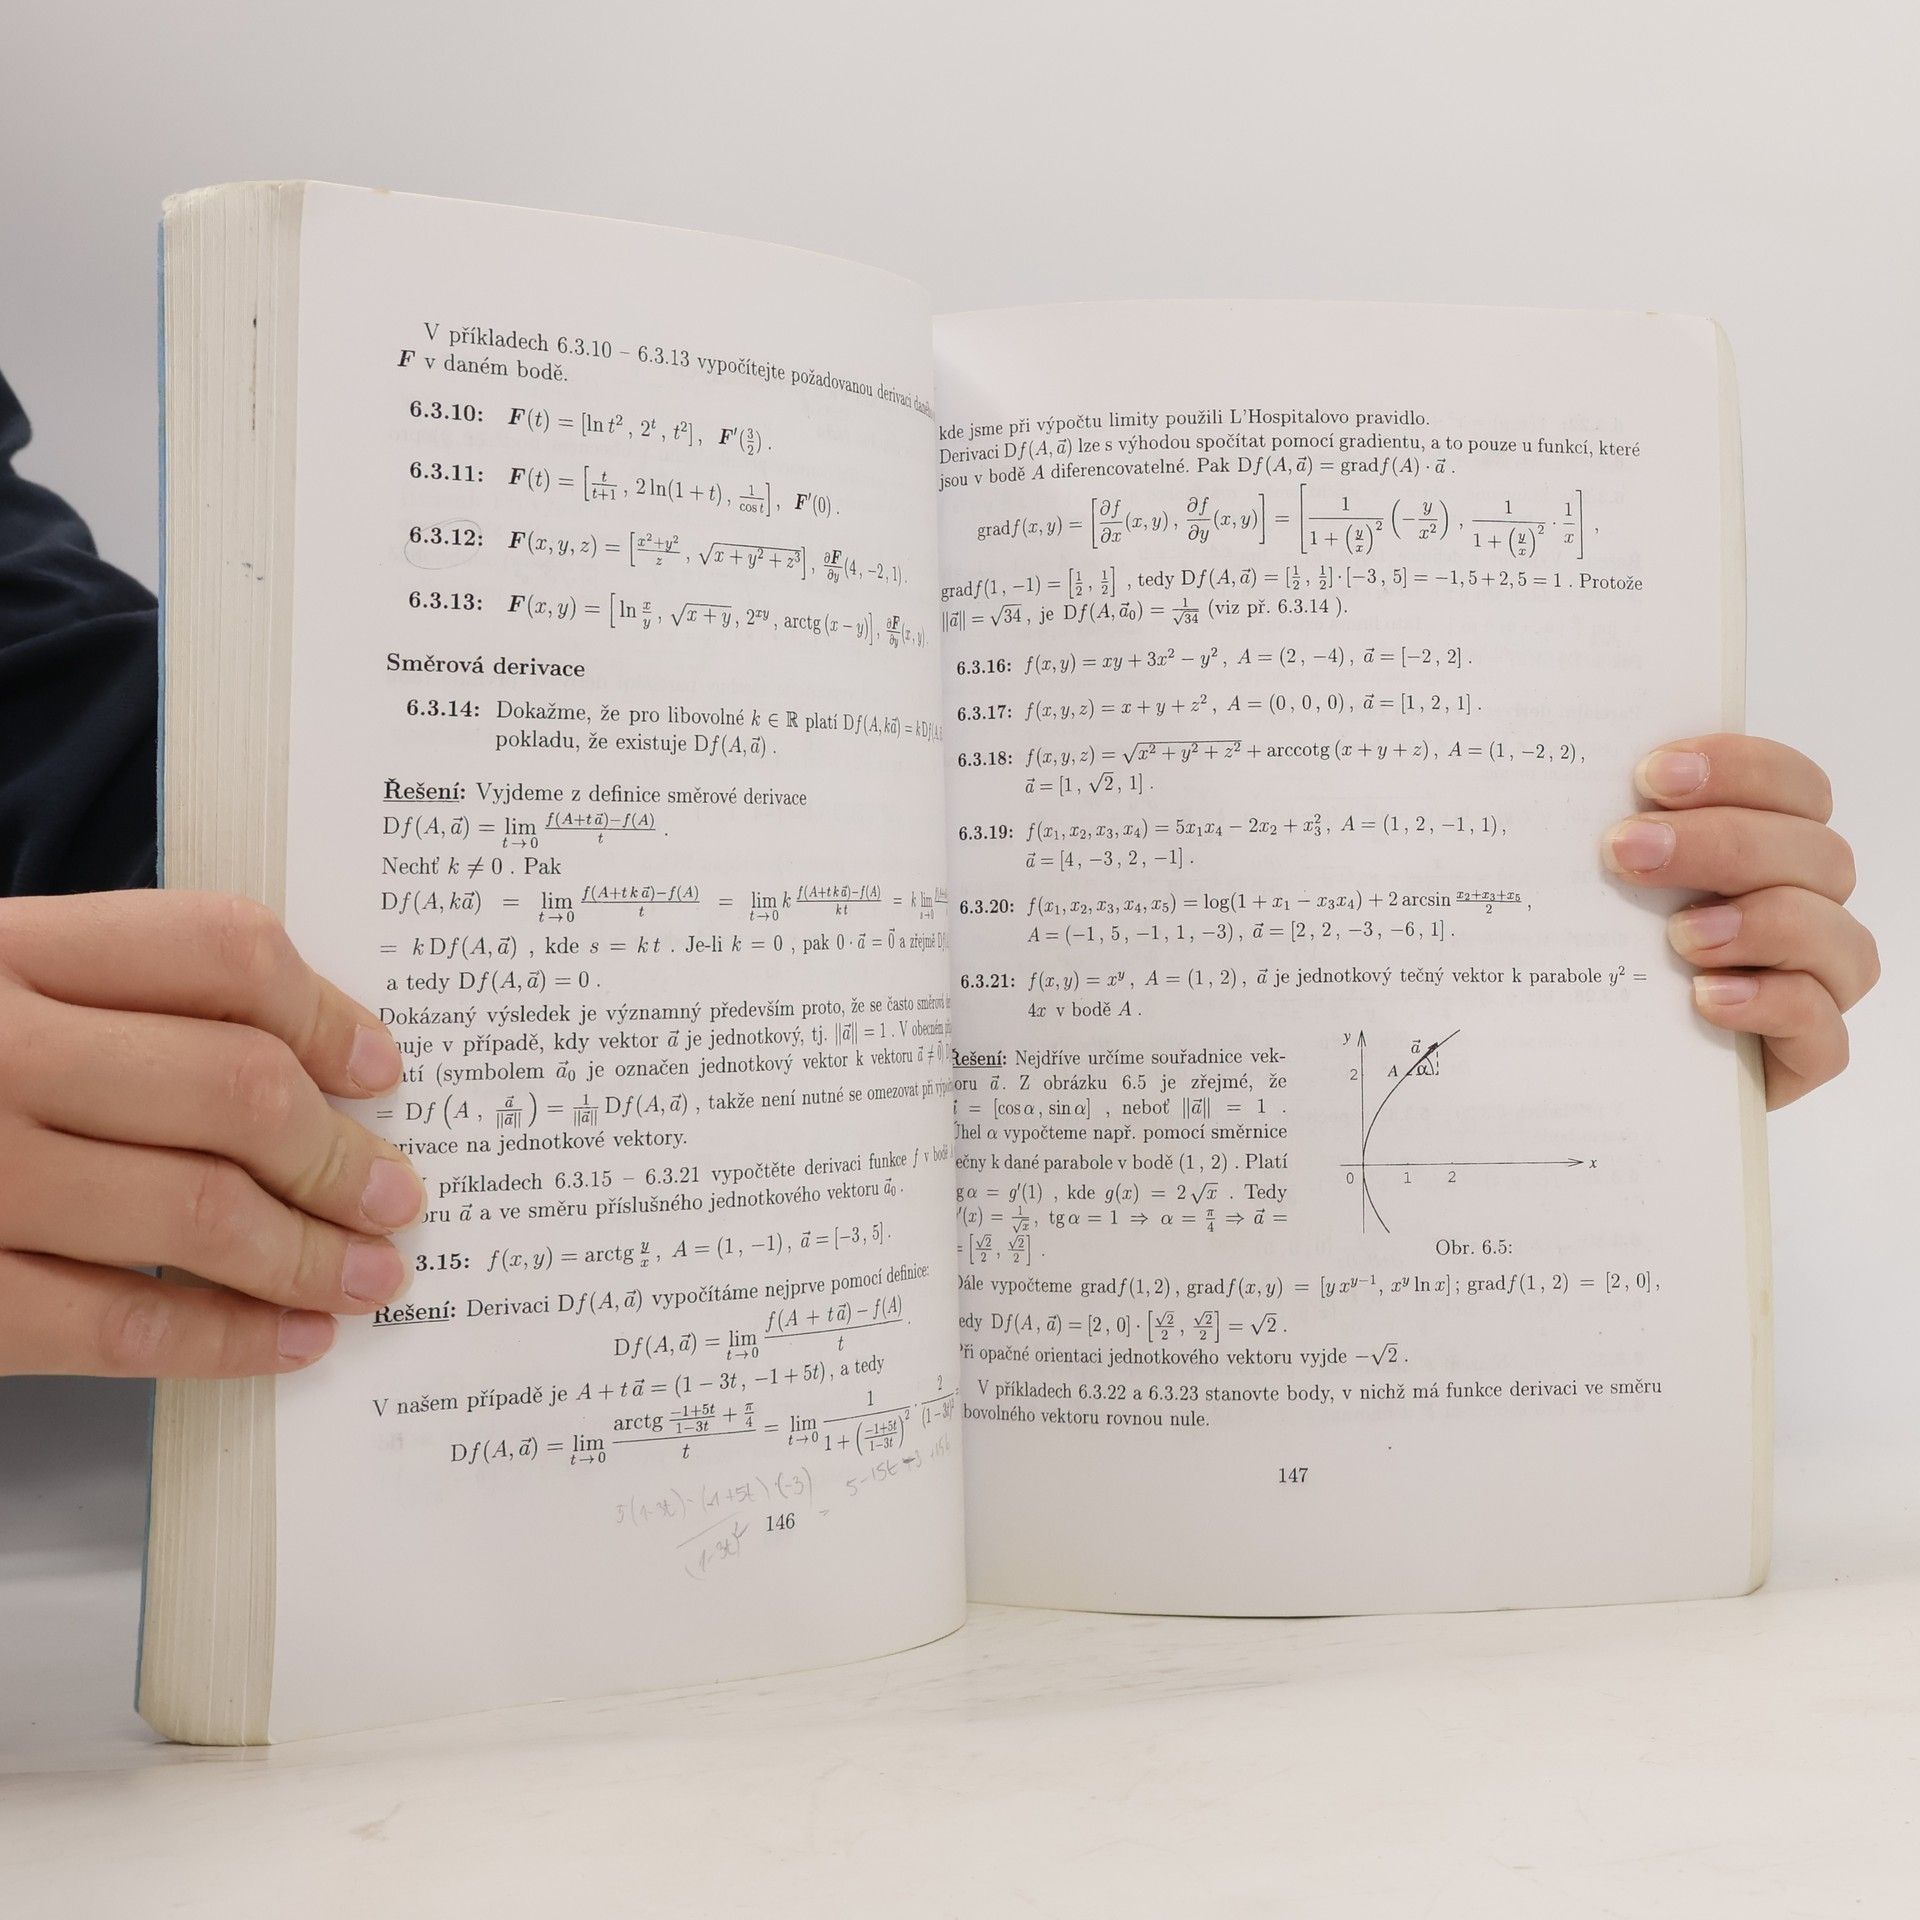 V příkladech 6.3.10 – 6.3.13 vypočítejte požadovanou derivaci
F v daném bodě.
6.3.10: F(t) = [ln t², 2ᵗ, t²], F′(3/2).
6.3.11: F(t) = [t/(t+1), 2 ln(1 + t), 1/cos t], F′(0).
6.3.12: F(x, y, z) = [(x²+y²)/z, √(x + y² + z³)], ∂F/∂y(4, −2, 1).
6.3.13: F(x, y) = [ln x/y, √(x + y), 2ˣʸ, arctg (x − y)], ∂F/∂y(x, y).
Směrová derivace
6.3.14: Dokažme, že pro libovolné k ∈ ℝ platí Df(A, ka⃗) = k Df(A
pokladu, že existuje Df(A, a⃗).
Řešení: Vyjdeme z definice směrové derivace
Df(A, a⃗) = lim t→0 (f(A+t a⃗)−f(A))/t .
Nechť k ≠ 0. Pak
Df(A, ka⃗) = lim t→0 (f(A+tk a⃗)−f(A))/t = lim t→0 k (f(A+tk a⃗)−f(A))/(k t) = k lim s→0
= k Df(A, a⃗), kde s = k t. Je-li k = 0, pak 0 · a⃗ = 0⃗ a zřejmě
a tedy Df(A, a⃗) = 0.
Dokázaný výsledek je významný především proto, že se často
uje v případě, kdy vektor a⃗ je jednotkový, tj. ||a⃗|| = 1. V obecném
tí (symbolem a⃗₀ je označen jednotkový vektor k vektoru a⃗ ≠ 0⃗)
= Df (A, a⃗/||a⃗||) = 1/||a⃗|| Df(A, a⃗), takže není nutné se omezovat při
rivace na jednotkové vektory.
příkladech 6.3.15 – 6.3.21 vypočtěte derivaci funkce f v bodě
oru a⃗ a ve směru příslušného jednotkového vektoru a⃗₀.
3.15: f(x, y) = arctg y/x, A = (1, −1), a⃗ = [−3, 5].
Řešení: Derivaci Df(A, a⃗) vypočítáme nejprve pomocí definice:
Df(A, a⃗) = lim t→0 (f(A + t a⃗) − f(A))/t .
V našem případě je A + t a⃗ = (1 − 3t, −1 + 5t), a tedy
Df(A, a⃗) = lim t→0 (arctg (−1+5t)/(1−3t) + π/4)/t = lim t→0 1/(1 + ((−1+5t)/(1−3t))²) · 2/(1 − 3t)²
5(1-3t) - (-1+5t)·(-3) / (1-3t)² =
146
kde jsme při výpočtu limity použili L'Hospitalovo pravidlo.
Derivaci Df(A, a⃗) lze s výhodou spočítat pomocí gradientu, a to pouze u funkcí, které
jsou v bodě A diferencovatelné. Pak Df(A, a⃗) = gradf(A) · a⃗.
gradf(x, y) = [∂f/∂x (x, y), ∂f/∂y (x, y)] = [1/(1 + (y/x)²) (−y/x²), 1/(1 + (y/x)²) · 1/x],
gradf(1, −1) = [1/2, 1/2], tedy Df(A, a⃗) = [1/2, 1/2] · [−3, 5] = −1, 5 + 2, 5 = 1. Protože
||a⃗|| = √34, je Df(A, a⃗₀) = 1/√34 (viz př. 6.3.14 ).
6.3.16: f(x, y) = xy + 3x² − y², A = (2, −4), a⃗ = [−2, 2].
6.3.17: f(x, y, z) = x + y + z², A = (0, 0, 0), a⃗ = [1, 2, 1].
6.3.18: f(x, y, z) = √(x² + y² + z²) + arccotg (x + y + z), A = (1, −2, 2),
a⃗ = [1, √2, 1].
6.3.19: f(x₁, x₂, x₃, x₄) = 5x₁x₄ − 2x₂ + x₃², A = (1, 2, −1, 1),
a⃗ = [4, −3, 2, −1].
6.3.20: f(x₁, x₂, x₃, x₄, x₅) = log(1 + x₁ − x₃x₄) + 2 arcsin (x₂+x₃+x₅)/2,
A = (−1, 5, −1, 1, −3), a⃗ = [2, 2, −3, −6, 1].
6.3.21: f(x, y) = xʸ, A = (1, 2), a⃗ je jednotkový tečný vektor k parabole y² =
4x v bodě A.
Řešení: Nejdříve určíme souřadnice vek-
oru a⃗. Z obrázku 6.5 je zřejmé, že
= [cos α, sin α], neboť ||a⃗|| = 1.
Úhel α vypočteme např. pomocí směrnice
ečny k dané parabole v bodě (1, 2). Platí
g α = g′(1), kde g(x) = 2√x. Tedy
′(x) = 1/√x, tg α = 1 ⇒ α = π/4 ⇒ a⃗ =
= [√2/2, √2/2].
y
2
A
a⃗
α
0
1
2
x
Obr. 6.5:
Dále vypočteme gradf(1, 2), gradf(x, y) = [y xʸ⁻¹, xʸ ln x]; gradf(1, 2) = [2, 0],
edy Df(A, a⃗) = [2, 0] · [√2/2, √2/2] = √2.
Při opačné orientaci jednotkového vektoru vyjde −√2.
V příkladech 6.3.22 a 6.3.23 stanovte body, v nichž má funkce derivaci ve směru
bovolného vektoru rovnou nule.
147